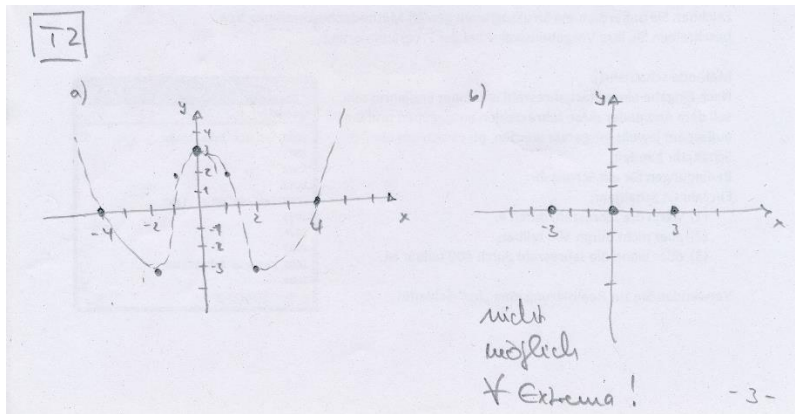 T2
a)
y
4
3
2
1
-4
-2
2
4
x
-1
-2
-3
b)
y
-3
3
x
nicht
möglich
∀ Extrema!
-3-